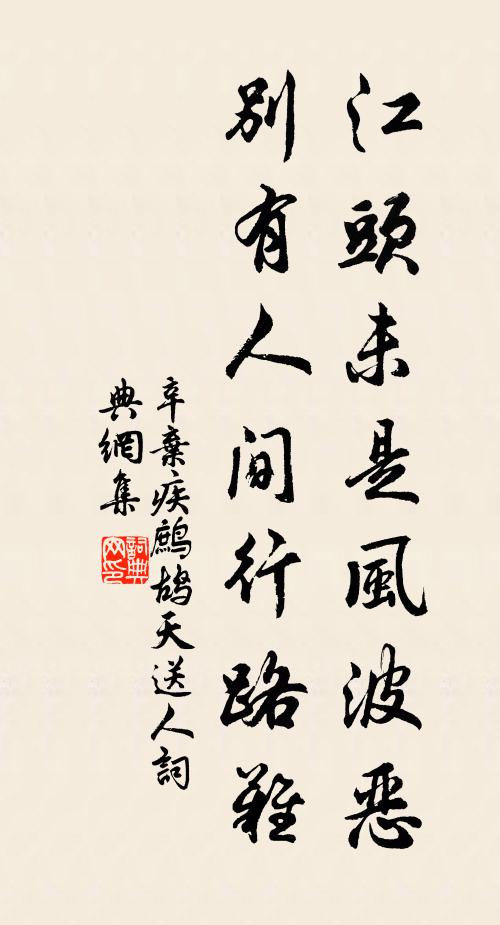 江頭未是風波惡
別有人間行路難
辛棄疾鷓鴣天送人詞
典網集
詞典
网印